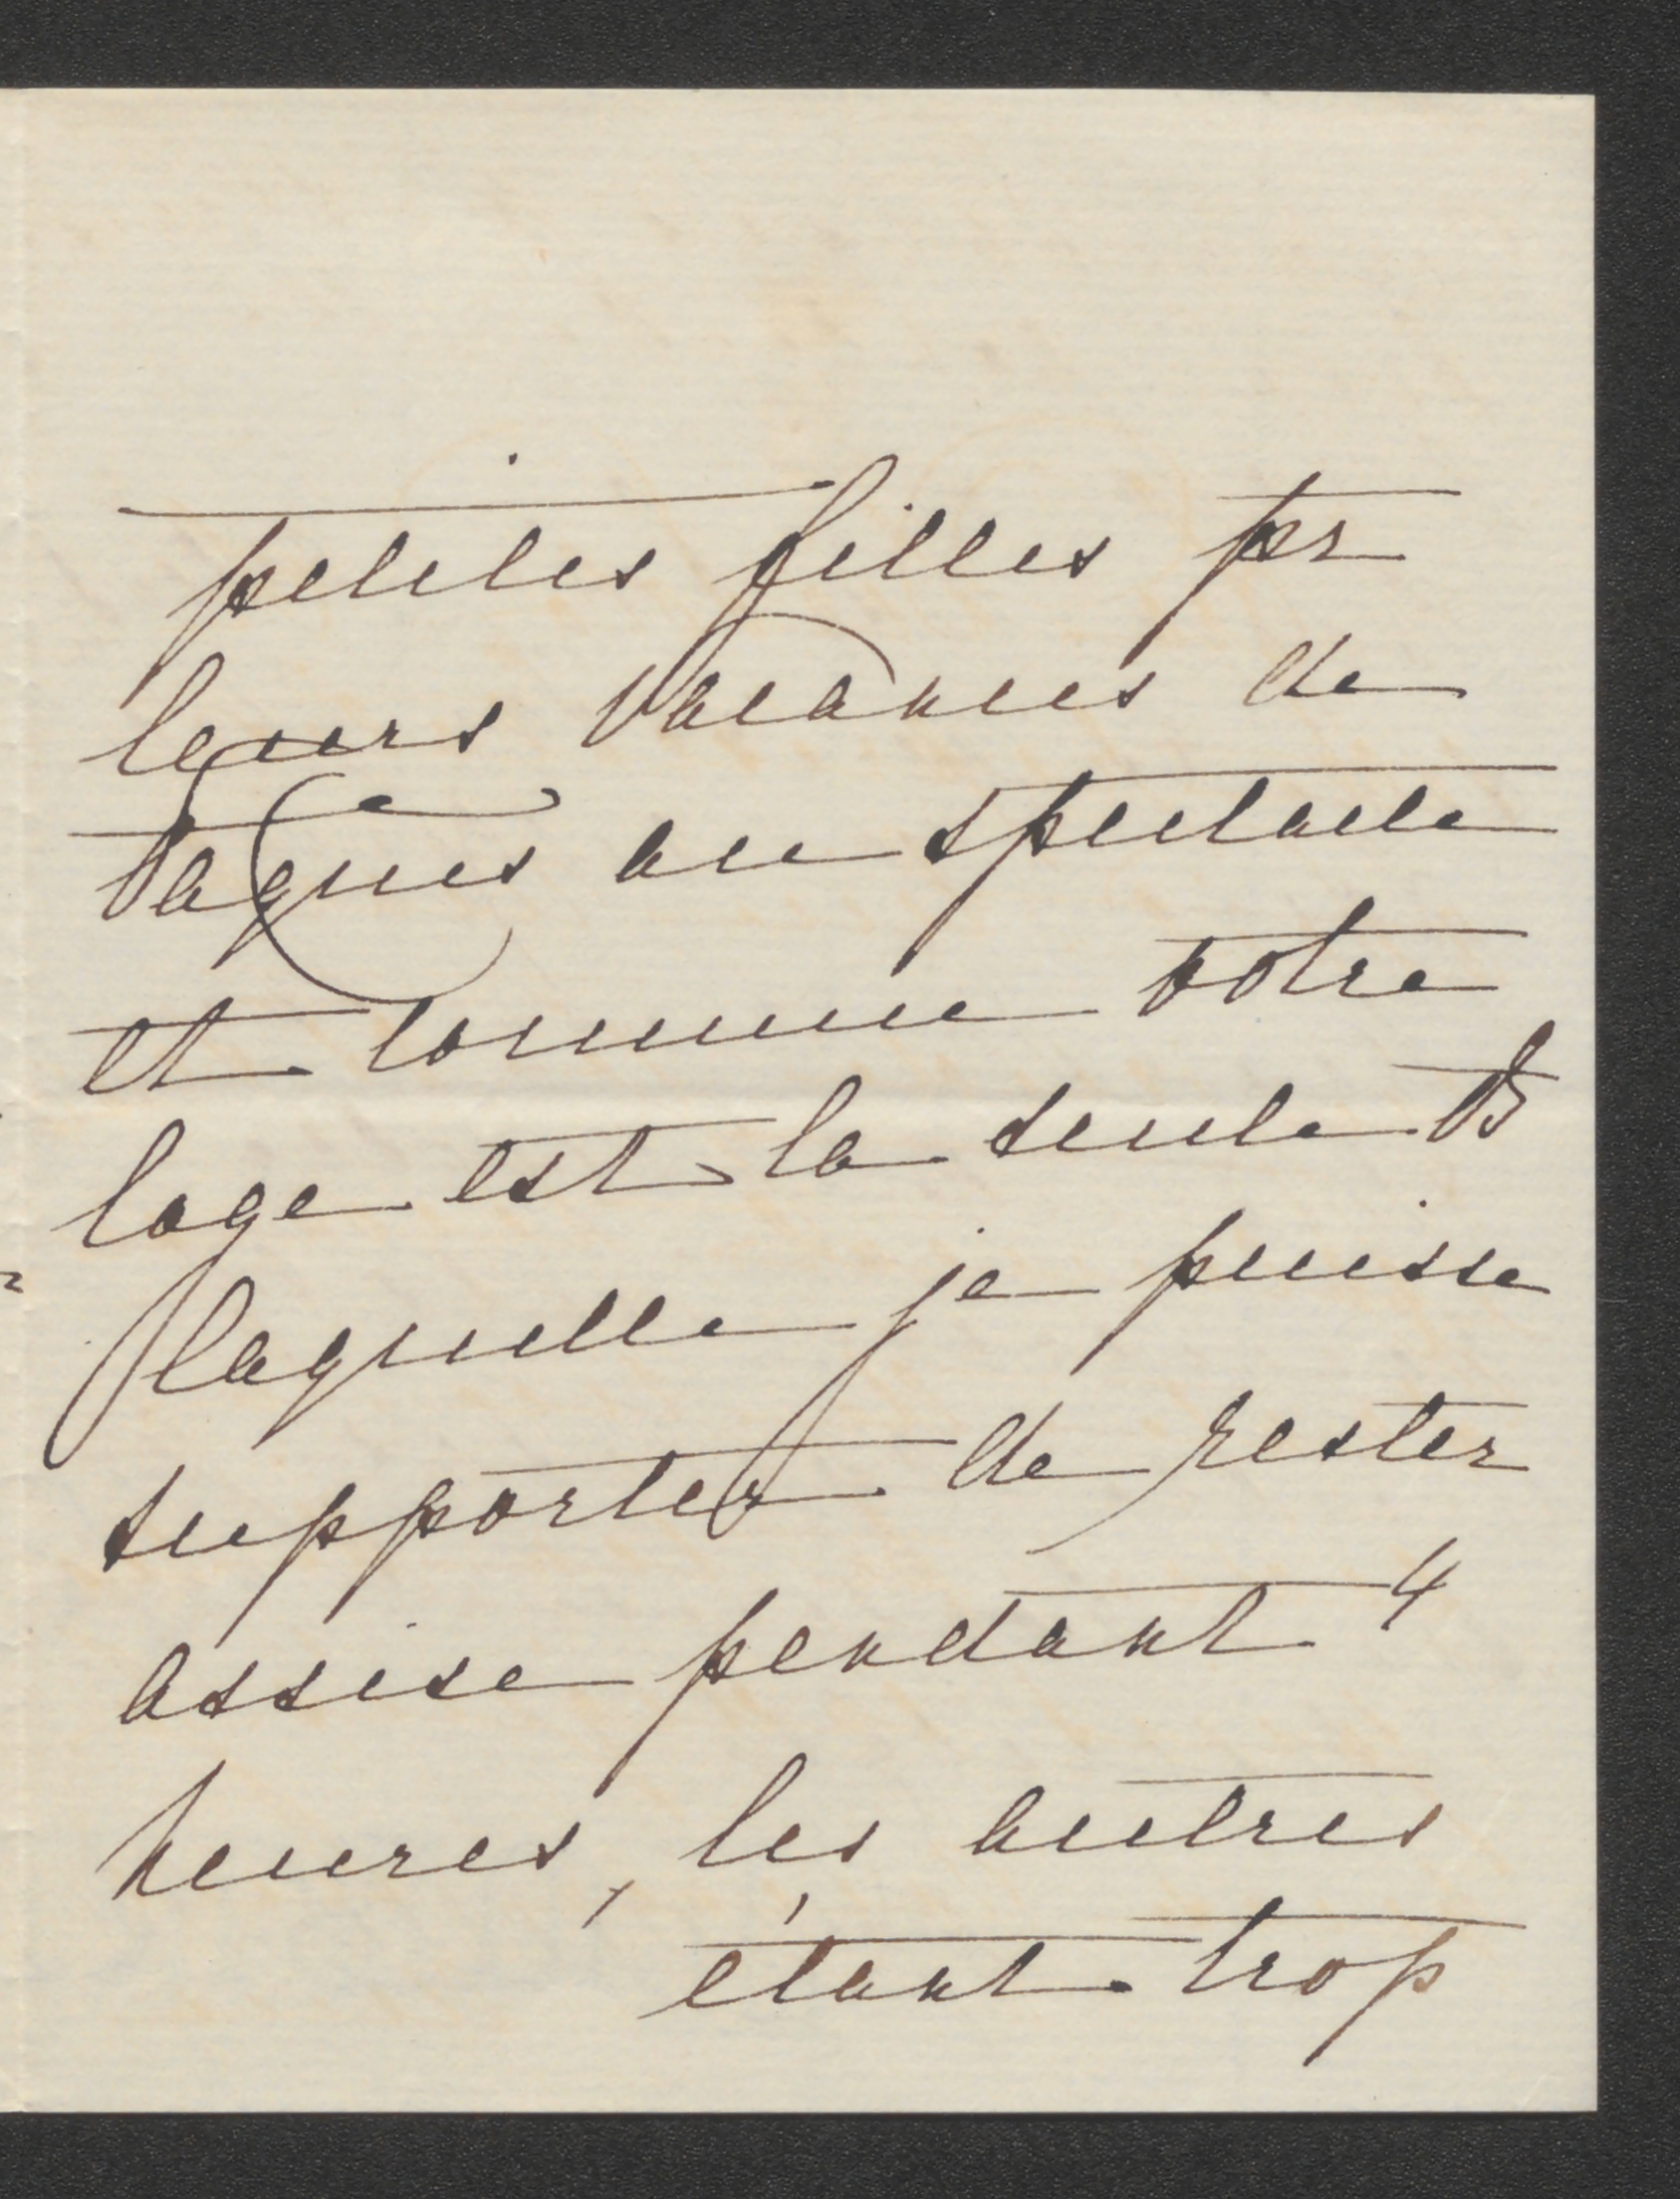 petites filles pr
leurs vacances de
Pâques au spectacle
et comme votre
loge est la seule ds
laquelle je puisse
supporter de rester
assise pendant 4
heures, les autres
étant trop